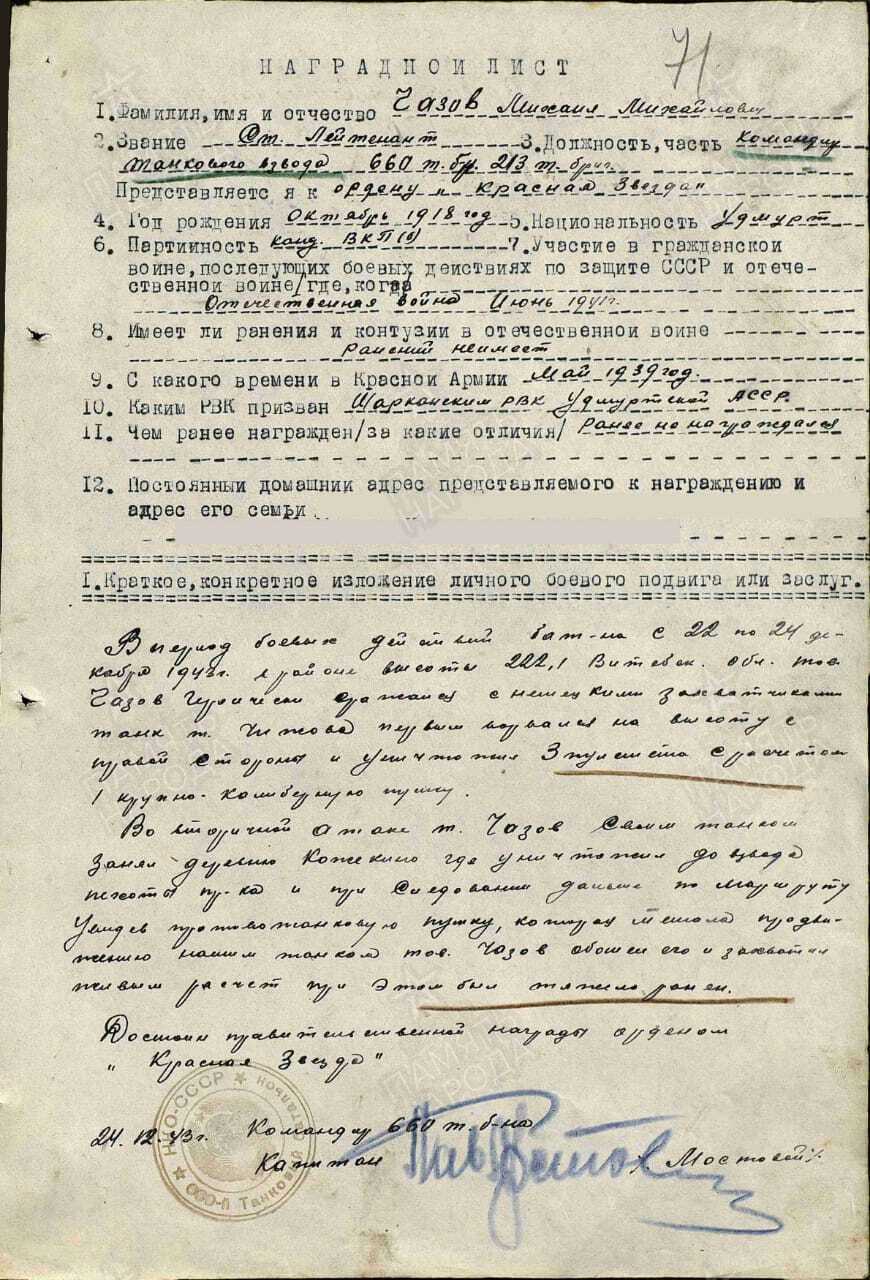 71
НАГРАДНОИ ЛИСТ
1. Фамилия, имя и отчество Чазов Михаил Михайлович
2. Звание Ст. Лейтенант 3. Должность, часть командир
танкового взвода 660 т. бр. 213 т. бриг.
Представляется к ордену „Красная Звезда"
4. Год рождения Октябрь 1918 год 5. Национальность Удмурт
6. Партииность канд. ВКП(б) 7. Участие в гражданскои
воине, последующих боевых деиствиях по защите СССР и отече-
ственнои воине/где, когда/
Отечественная война Июнь 1941г.
8. Имеет ли ранения и контузии в отечественнои воине
ранений неимеет
9. С какого времени в Краснои Армии Май 1939 год.
10. Каким РВК призван Шарканским РВК Удмуртской АССР.
11. Чем ранее награжден/за какие отличия/ Ранее не награждался
12. Постоянныи домашнии адрес представляемого к награждению и
адрес его семьи
1. Краткое, конкретное изложение личного боевого подвига или заслуг.
В период боевых действий бат-на с 22 по 24 де-
кабря 1943г. в районе высоты 222,1 Витебск. обл. тов
Чазов Героически сражался с немецкими захватчиками
танк т. Чижова первым ворвался на высоту с
правой стороны и уничтожил 3 пулемета с расчетом
1 крупно-калиберную пушку.
Во вторичной атаке т. Чазов своим танком
занял деревню Кожекино где уничтожил до взвода
пехоты пр-ка и при следовании дальше по маршруту
увидев противотанковую пушку, которая мешала продви-
жению нашим танкам тов. Чазов обошел его и захватил
живым расчет при этом был тяжело ранен.
Достоин правительственной награды орденом
„Красная Звезда"
24.12.43г. Командир 660 т. б-на
Капитан /Мостовой/.
НКО-СССР
660-й Танковый